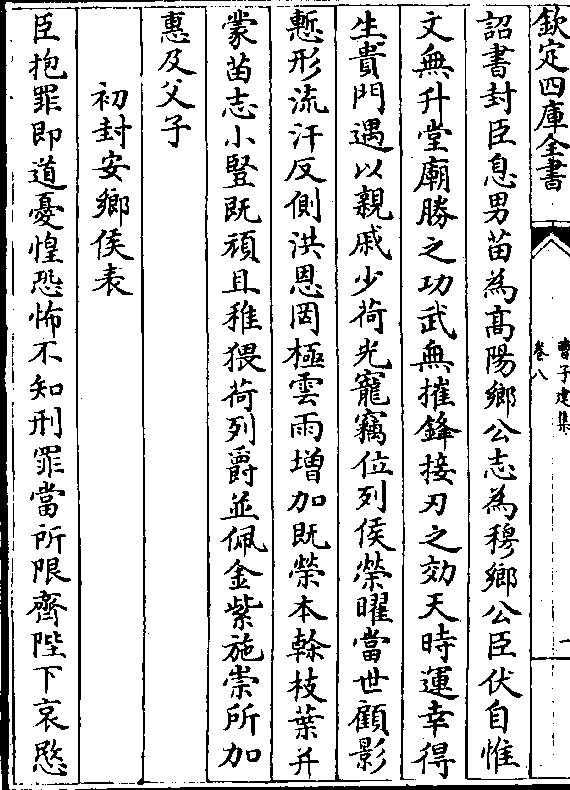 欽定四庫全書
曹子建集
卷八
一
詔書封臣息男苗為髙陽鄉公志為穆鄉公臣伏自惟
文無升堂廟勝之功武無摧鋒接刃之効天時運幸得
生貴門遇以親戚少荷光寵竊位列侯榮曜當世顧影
慙形流汗反側洪恩罔極雲雨增加既榮本榦枝葉并
蒙苗志小豎既頑且稚猥荷列爵並佩金紫施崇所加
惠及父子
初封安鄉侯表
臣抱罪即道憂惶恐怖不知刑罪當所限齊陛下哀愍